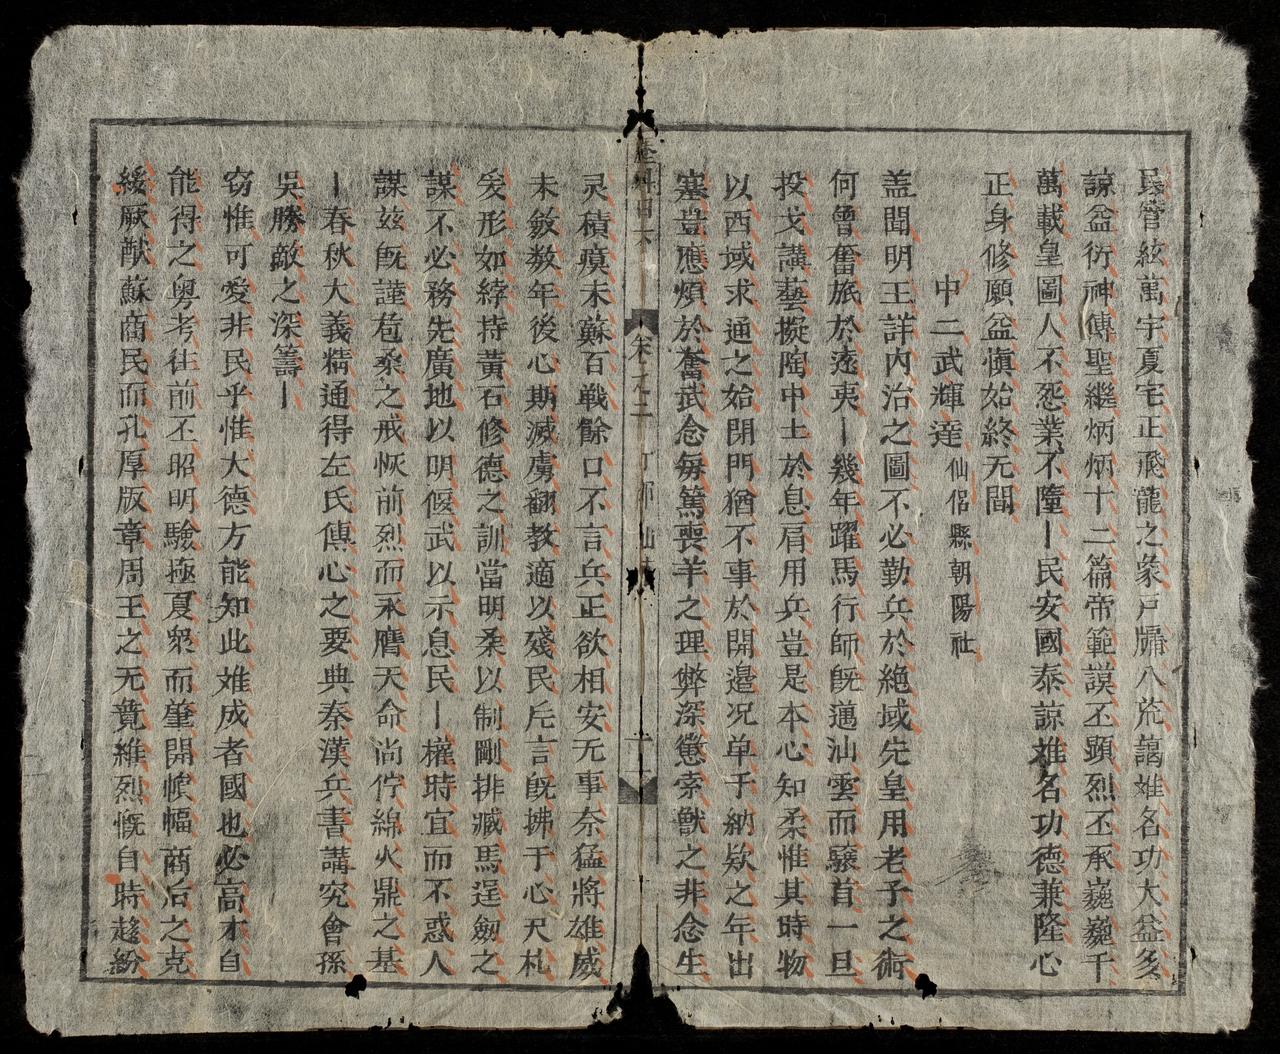 民管絃萬宇夏宅正飛龍之象戸牖八荒藹雖名功大益多
諒益衍神傳聖繼炳炳十二篇帝範謨丕顕烈丕承巍巍千
萬載皇圖人不怨業不墮｜民安國泰諒雖名功德兼隆心
正身修願益愼始終无間
中二武輝達仙侶縣朝陽社
盖聞明王詳内治之圖不必勤兵於絶域先皇用老子之術
何曾奮旅於逺夷｜幾年躍馬行師既邁汕雲而驤首一旦
投戈講藝擬陶中土於息肩用兵豈是本心知柔惟其時物
以西域求通之始閉門猶不事於開邉况单于納欵之年出
塞豈應煩於奮武念毎篤喪羊之理弊深懲索獸之非念生
灵積瘼未蘇百戦餘口不言兵正欲相安无事奈猛將雄威
未斂数年後心期滅虜翻教適以殘民片言既拂于心尺札
爰形如綍持黄石修德之訓當明柔以制剛排臧馬逞劔之
謀不必務先廣地以明偃武以示息民｜權時宜而不惑人
謀玆既謹苞桑之戒恢前烈而禾膺天命尚佇綿火鼎之基
｜春秋大義精通得左氏傳心之要典秦漢兵書講究會孫
吳勝敵之深籌｜
窃惟可愛非民乎惟大德方能知此雖成者國也必高才自
能得之粤考往前丕昭明驗極夏衆而肇開幅商后之克
綏厥猷蘇商民而孔厚版章周王之无競維烈慨自時趍紛
卷之二